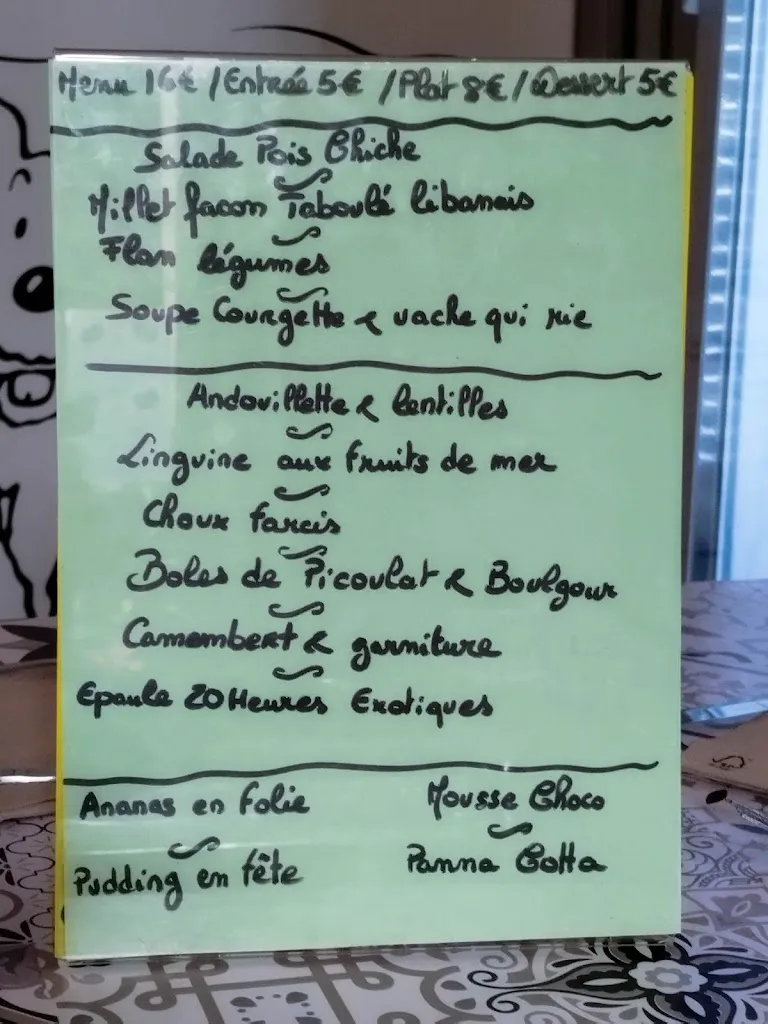 Menu 16€ / Entrée 5€ / Plat 8€ / Dessert 5€
Salade Pois Chiche
Millet facon Taboulé libanais
Flan légumes
Soupe Courgette & vache qui rie
Andouillette & lentilles
Linguine aux fruits de mer
Choux farcis
Boles de Picoulat & Boulgour
Camembert & garniture
Epaule 20 Heures Exotiques
Ananas en folie
Pudding en fête
Mousse Choco
Panna Cotta